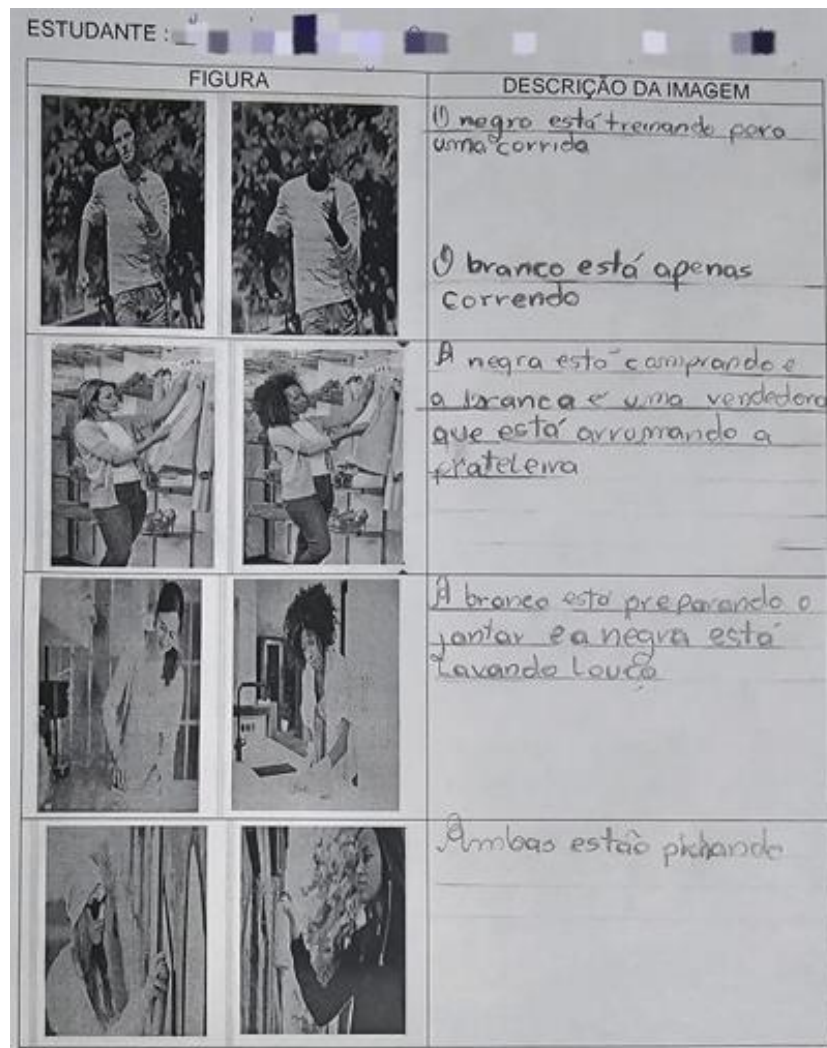 ESTUDANTE :
FIGURA
DESCRIÇÃO DA IMAGEM
O negro está treinando para
uma corrida
O branco está apenas
correndo
A negra está comprando e
a branca é uma vendedora
que está arrumando a
prateleira
A branca está preparando o
jantar e a negra está
Lavando Louça
Ambas estão pichando